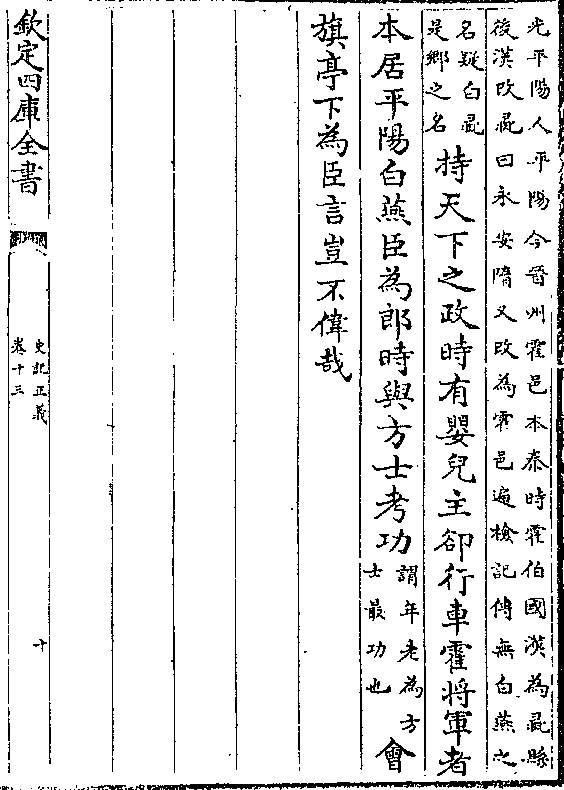 光平陽人平陽今晉州霍邑本秦時霍伯國漢為彘縣
後漢改彘曰永安隋又改為霍邑遍檢記傳無白燕之
名疑白彘
是鄉之名
持天下之政時有嬰兒主卻行車霍將軍者
本居平陽白燕臣為郎時與方士考功
謂年老為方
士最功也
會
旗亭下為臣言豈不偉哉
欽定四庫全書
史記正義
卷十三
十